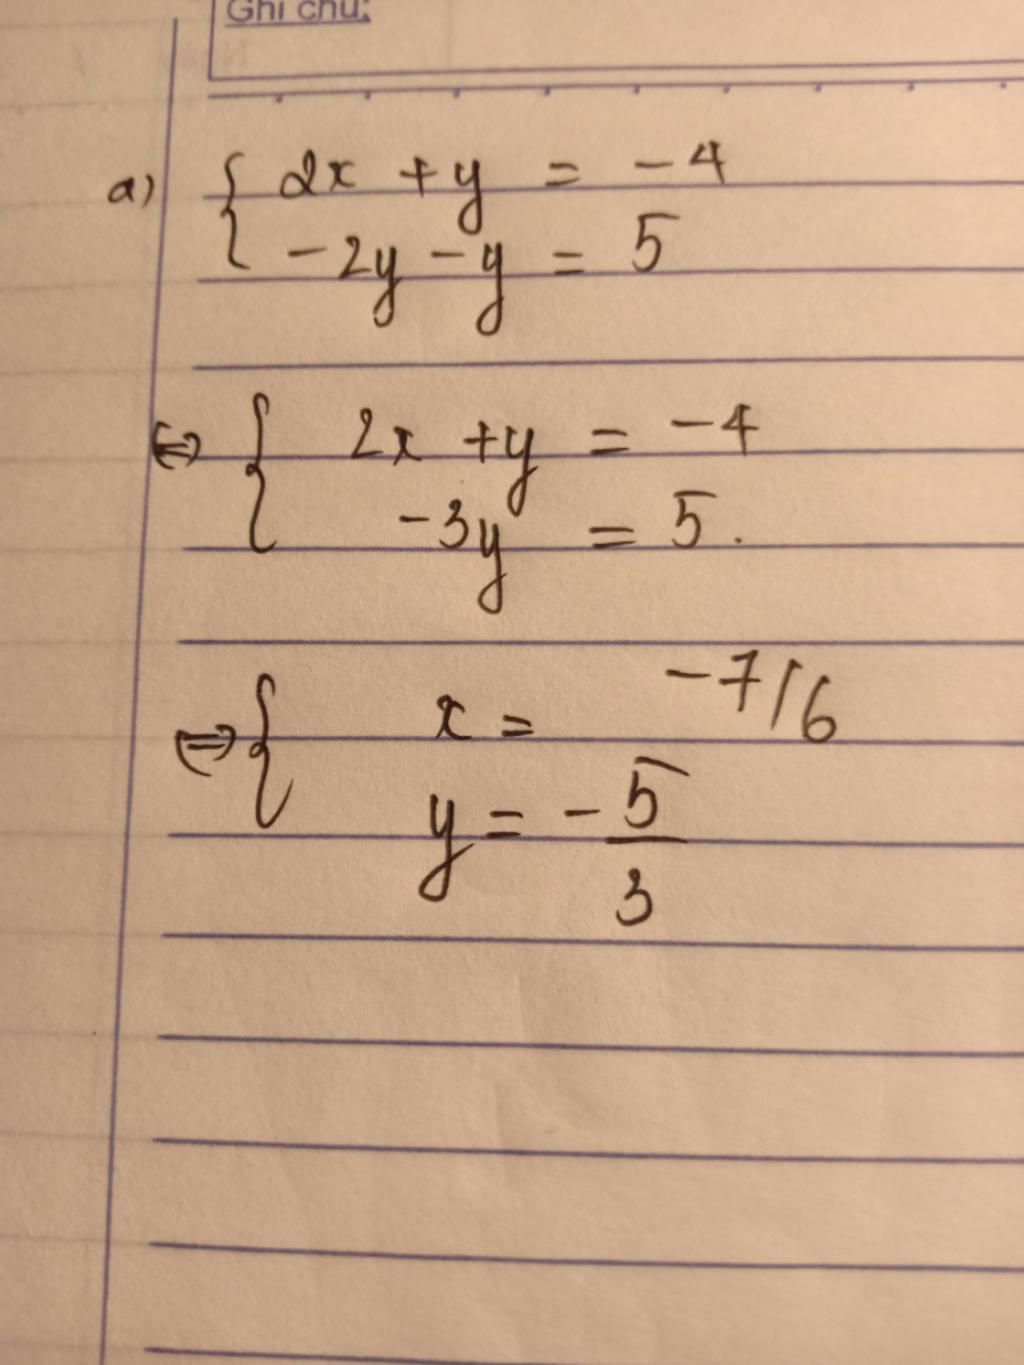 Ghi chú:
a) { 2x + y = -4
-2y - y = 5
⇔ { 2x + y = -4
-3y = 5.
⇔ { x = -7/6
y = - 5/3